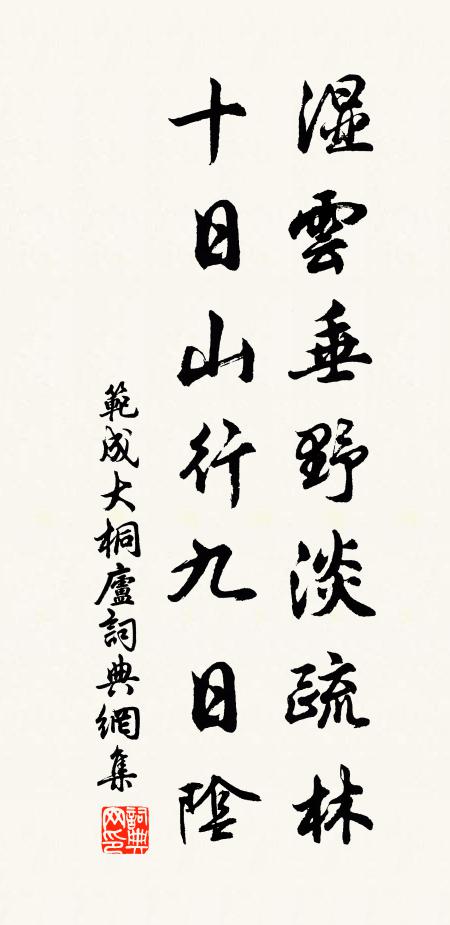 濕雲垂野淡疏林
十日山行九日陰
範成大桐廬詞典網集
詞典网印